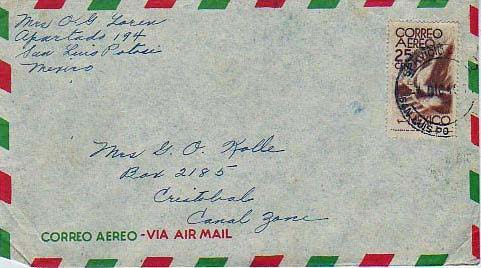 Mrs O G Loren
Apartado 194
San Luis Potosi
Mexico
CORREO
AEREO
25
CTS
MEXICO
SAN LUIS PO
Mrs G. O. Kolle
Box 2185
Cristobal
Canal Zone
CORREO AEREO - VIA AIR MAIL